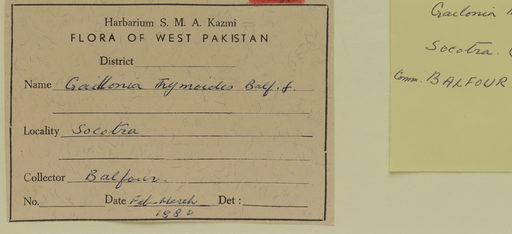 Harbarium S. M. A. Kazmi
FLORA OF WEST PAKISTAN
District
Name Gaillonia Thymoides Balf. f.
Locality Socotra
Collector Balfour.
No. Date Feb-March Det :
1880
Gaillonia
Socotra.
Comm. BALFOUR